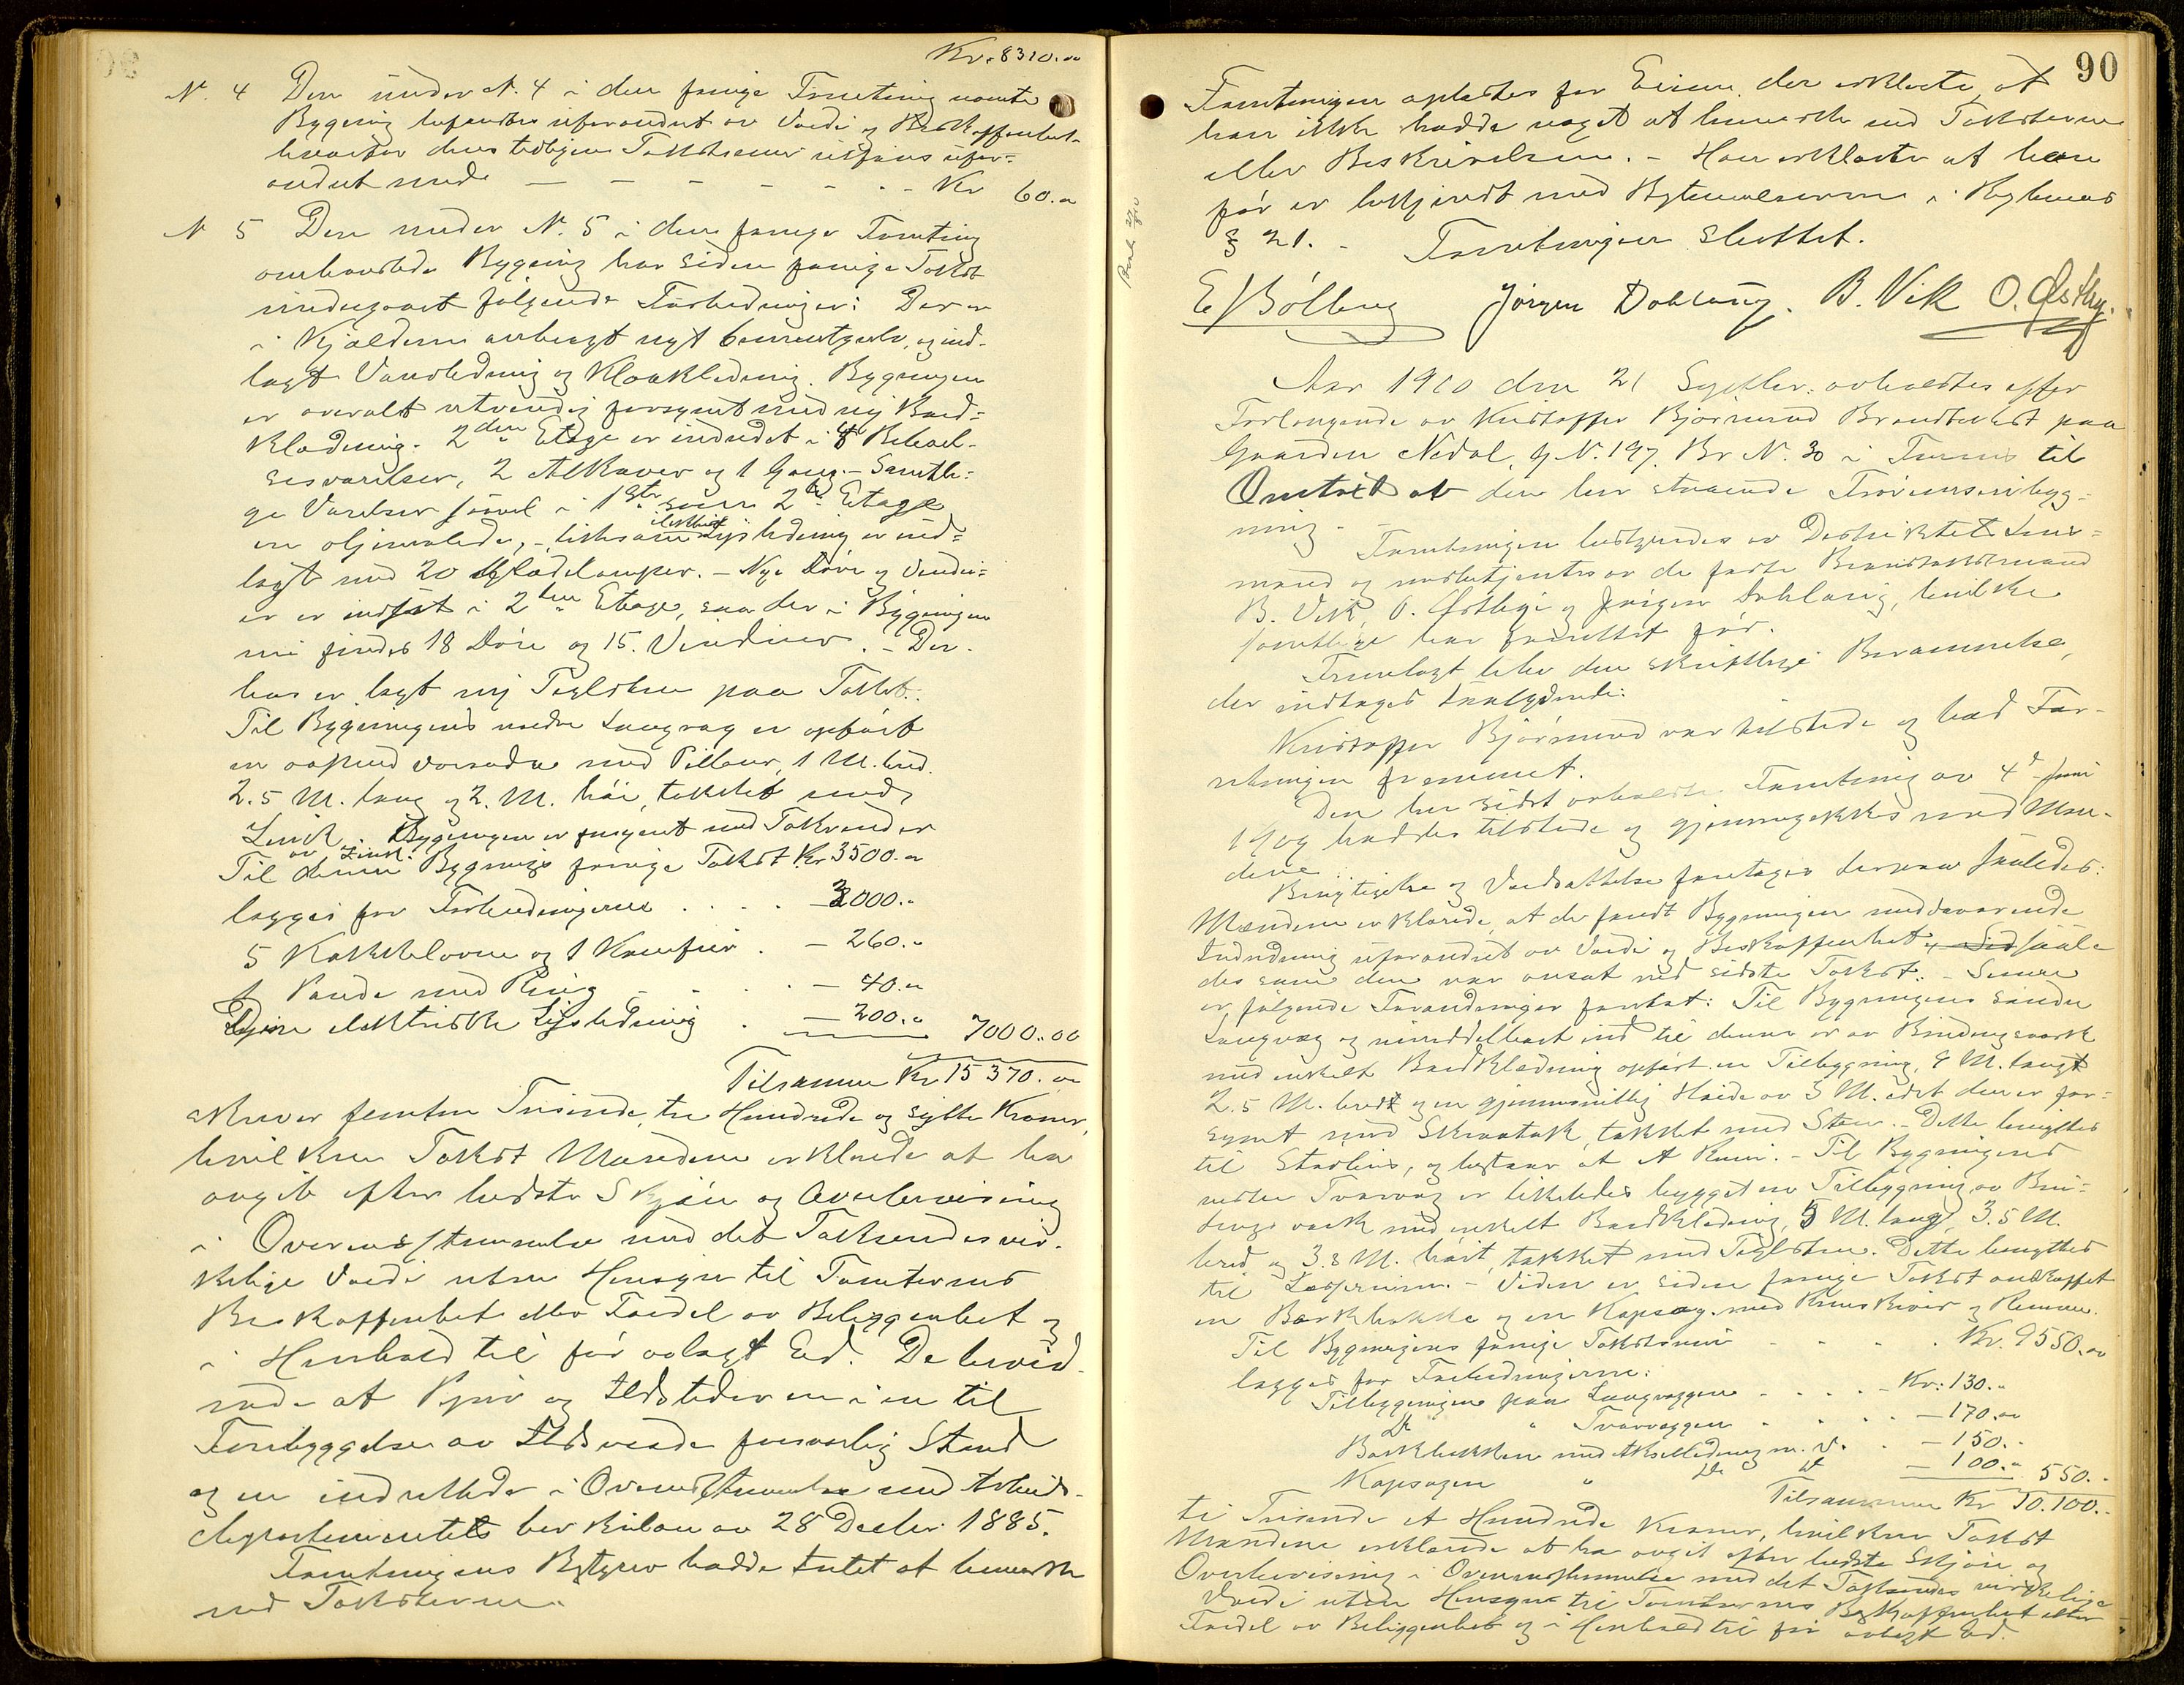 Kr. 8310.00
N. 4 Den under N. 4 i den forrige Forretning nævnte
Bygning befandtes uforandret av Værdi og Beskaffenhet
hvorfor dens tidligere Takstsum utføres ufor=
andret med — — — — - - - Kr 60.00
N 5 Den under N. 5 i den forrige Forretning
omhandlede Bygning har siden forrige Takst
undergaaet følgende Forbedringer: Der er
i Kjælderen anbragt nyt Cementgulv, og ind-
lagt Vandledning og Kloakledning. Bygningen
er overalt utvendig forsynet med ny Bord=
klædning. 2den Etage er indredet i 4 Beboel-
sesværelser, 2 Alkover og 1 Gang. - Samtli=
ge Værelser såvel i 1ste som 2den Etage
er oljemalede, - likesom elektrisk Lysledning er ind=
lagt med 20 Glødelamper. - Nye Døre og Vindu=
er er indsat i 2den Etage, saa der i Bygningen
nu findes 18 Døre og 15. Vinduer. - Der-
hos er lagt ny Teglsten paa Taket.
Til Bygningens nedre Langvæg er opført
en aapen Veranda med Pillarer, 1 M. bred.
2.5 M. lang og 2. M. høi, tækket med
Zink. Bygningen er forsynet med Takrender
av Zink.
Til denne Bygnings forrige Takst Kr 3500.00
lægges for Forbedringerne . . . . — 3000.00
5 Kakkelovne og 1 Komfur . — 260.00
1 Pande med Ring - - . . — 40.00
Den elektriske Lysledning . — 200.00 7000.00
Tilsammen Kr. 15 370.00
skriver femten Tusinde, tre Hundrede og sytti Kroner,
hvilken Takst Mændene erklærede at ha
avgit efter bedste Skjøn og Overbevisning
i Overensstemmelse med det Takserendes vir-
kelige Værdi uten Hensyn til Tomternes
Beskaffenhet eller Fordel av Beliggenhet og
i Henhold til før avlagt Ed. De bevid-
nede at Piper og Ildsteder er i en til
Forebyggelse av Ildsvaade forsvarlig Stand
og er indrettede i Overensstemmelse med Arbeids-
departementets cirkulære av 28 Decbr 1885.
Forretningens Bestyrer hadde Intet at bemerke
ved Taksterne.
90
Forretningen oplæstes for Eieren, der erklærte, at
han ikke hadde noget at bemerke ved Taksterne
eller Beskrivelsen. - Han erklærte at han
før er bekjendt med Bestemmelserne i Reglernes
§ 21. - Forretningen sluttet.
E Bólling Jørgen Dahlaug. B. Vik O. Østby.
Aar 1910 den 21 Septbr. avholdtes efter
Forlangende av Kristoffer Bjørnerud Brandtakst paa
Gaarden Nedal, G. N. 197. Br N. 30 i Furnes til
Omtakst av den her staaende Træurensbyg=
ning. -
Forretningen bestyredes av Distriktets Lens=
mand og medbetjentes av de faste Brandtakstmænd
B. Vik, O. Østbye og Jørgen Dahlaug, hvilke
samtlige har forrettet før.
Fremlagt blev den skriftlige Berammelse,
der indtages saalydende:
Kristoffer Bjørnerud var tilstede og bad For-
retningen fremmet.
Den her sidst avholdte Forretning av 4de Juni
1909 haddes tilstede og gjennemgikkes med Mæn-
dene.
Besigtigelse og Værdsættelse foretages derpaa saaledes:
Mændene erklærede, at de fandt Bygningen med derværende
Indredning uforandret av Værdi og Beskaffenhet, saale
des som den var ansat ved sidste Takst. - Senere
er følgende Forandringer foretat: Til Bygningens søndre
Langvæg og umiddelbart ind til denne er av Bindingsværk
med enkelt Bordklædning opført en Tilbygning, 4 M. langt
2.5 M. bredt og en gjennemsnitlig Høide av 3 M. idet den er for=
synet med Skraatak, tækket med Sten. - Dette benyttes
til Stadlius, og bestaar av et Rum. - Til Bygningens
vestre Tvervæg er likeledes bygget en Tilbygning av Bin=
dings værk med enkelt Bordklædning, 5 M. lang, 3.5 M.
bred og 3.3 M. høit, tækket med Teglsten. Dette benyttes
til Lagerrum. - Videre er siden forrige Takst anskaffet
en Barkhakke og en Kapsag med Remskiver og Remmer.
Til Bygningens forrige Takstsum - - . Kr. 9550.00
lægges for Forbedringerne:
Tilbygningen paa Langvæggen . . . . - Kr: 130.00
Do " Tvervæggen . . . . — 170.00
Barkhakken med Akselledning m. v. . — 150.00
Kapsagen " Do Do — 100.00 550.00
Tilsammen Kr 10.100.00
ti Tusinde et Hundrede Kroner, hvilken Takst
Mændene erklærede at ha avgit efter bedste Skjøn og
Overbevisning i Overensstemmelse med det Takserendes virkelige
Værdi uten Hensyn til Tomternes Beskaffenhet eller
Fordel av Beliggenhet og i Henhold til før avlagt Ed.